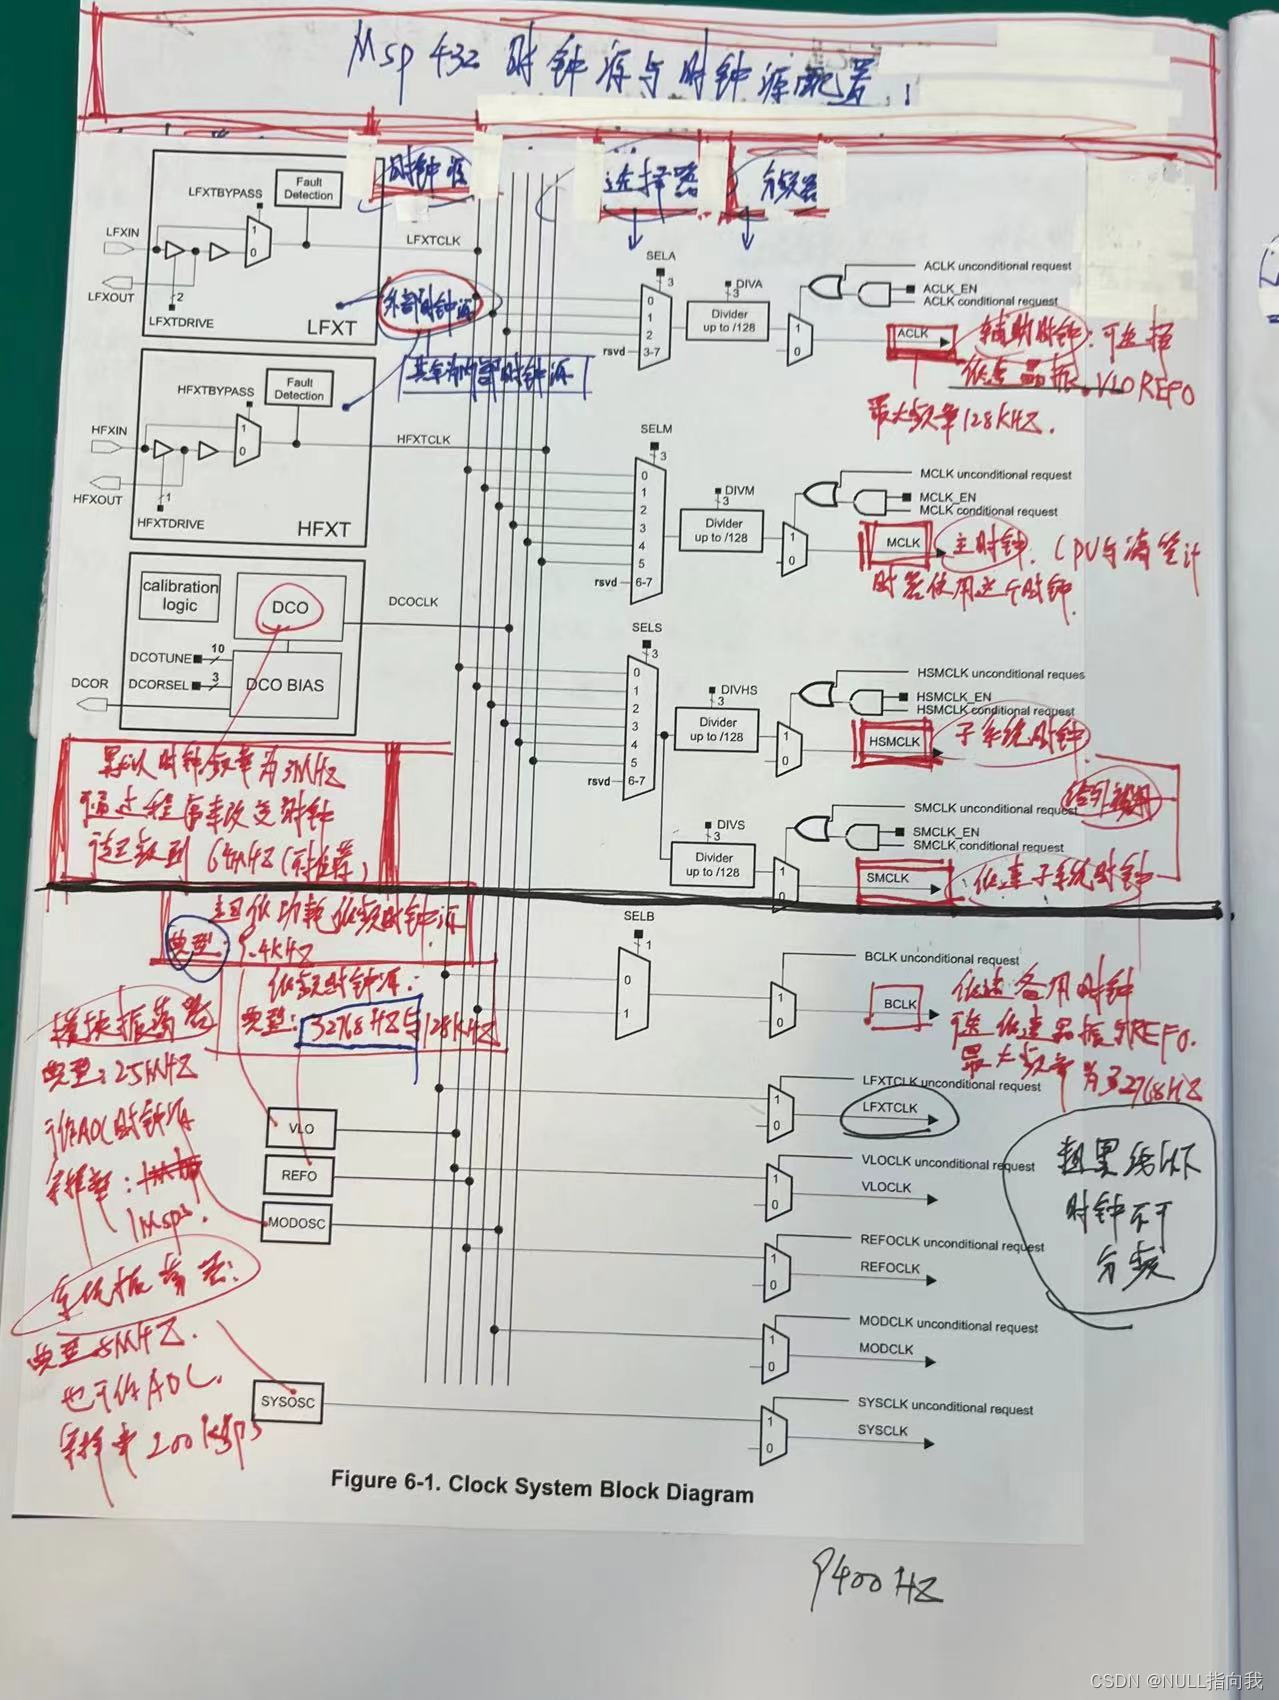 Msp 432 时钟源与时钟源配置
时钟源
选择器
分频器
LFXTBYPASS
Fault
Detection
LFXIN
LFXOUT
1
0
2
LFXTDRIVE
LFXT
LFXTCLK
外部时钟源
其余为内部时钟源
SELA
3
0
1
2
rsvd
3-7
DIVA
3
Divider
up to /128
1
0
ACLK unconditional request
ACLK_EN
ACLK conditional request
ACLK
辅助时钟:可选择
低速晶振.VLO REFO
最大频率128KHZ.
HFXTBYPASS
Fault
Detection
HFXIN
HFXOUT
1
0
1
HFXTDRIVE
HFXT
HFXTCLK
SELM
3
0
1
2
3
4
5
rsvd
6-7
DIVM
3
Divider
up to /128
1
0
MCLK unconditional request
MCLK_EN
MCLK conditional request
MCLK
主时钟. CPU与滴答计
时器使用这个时钟.
calibration
logic
DCO
DCOCLK
DCOTUNE
10
DCORSEL
3
DCO BIAS
DCOR
SELS
3
0
1
2
3
4
5
rsvd
6-7
DIVHS
3
Divider
up to /128
1
0
HSMCLK unconditional reques
HSMCLK_EN
HSMCLK conditional request
HSMCLK
子系统时钟
给外设用
DIVS
3
Divider
up to /128
1
0
SMCLK unconditional request
SMCLK_EN
SMCLK conditional request
SMCLK
低速子系统时钟
默认时钟频率为3MHZ
通过程序来改变时钟
64MHZ(不推荐)
超低功耗低频时钟源
典型: 9.4KHZ
低频时钟源:
典型: 32768HZ与128KHZ
模块振荡器
典型:25MHZ
可作ADC时钟源
1Msps.
系统振荡器:
典型5MHZ.
也可作ADC.
采样率200Ksps
VLO
REFO
MODOSC
SYSOSC
SELB
1
0
1
BCLK unconditional request
1
0
BCLK
低速备用时钟
可选低速晶振与REFO.
最大频率为32768HZ
LFXTCLK unconditional request
1
0
LFXTCLK
VLOCLK unconditional request
1
0
VLOCLK
REFOCLK unconditional request
1
0
REFOCLK
MODCLK unconditional request
1
0
MODCLK
SYSCLK unconditional request
1
0
SYSCLK
粗黑线以下
时钟不可
分频
Figure 6-1. Clock System Block Diagram
9400HZ
CSDN @NULL指向我